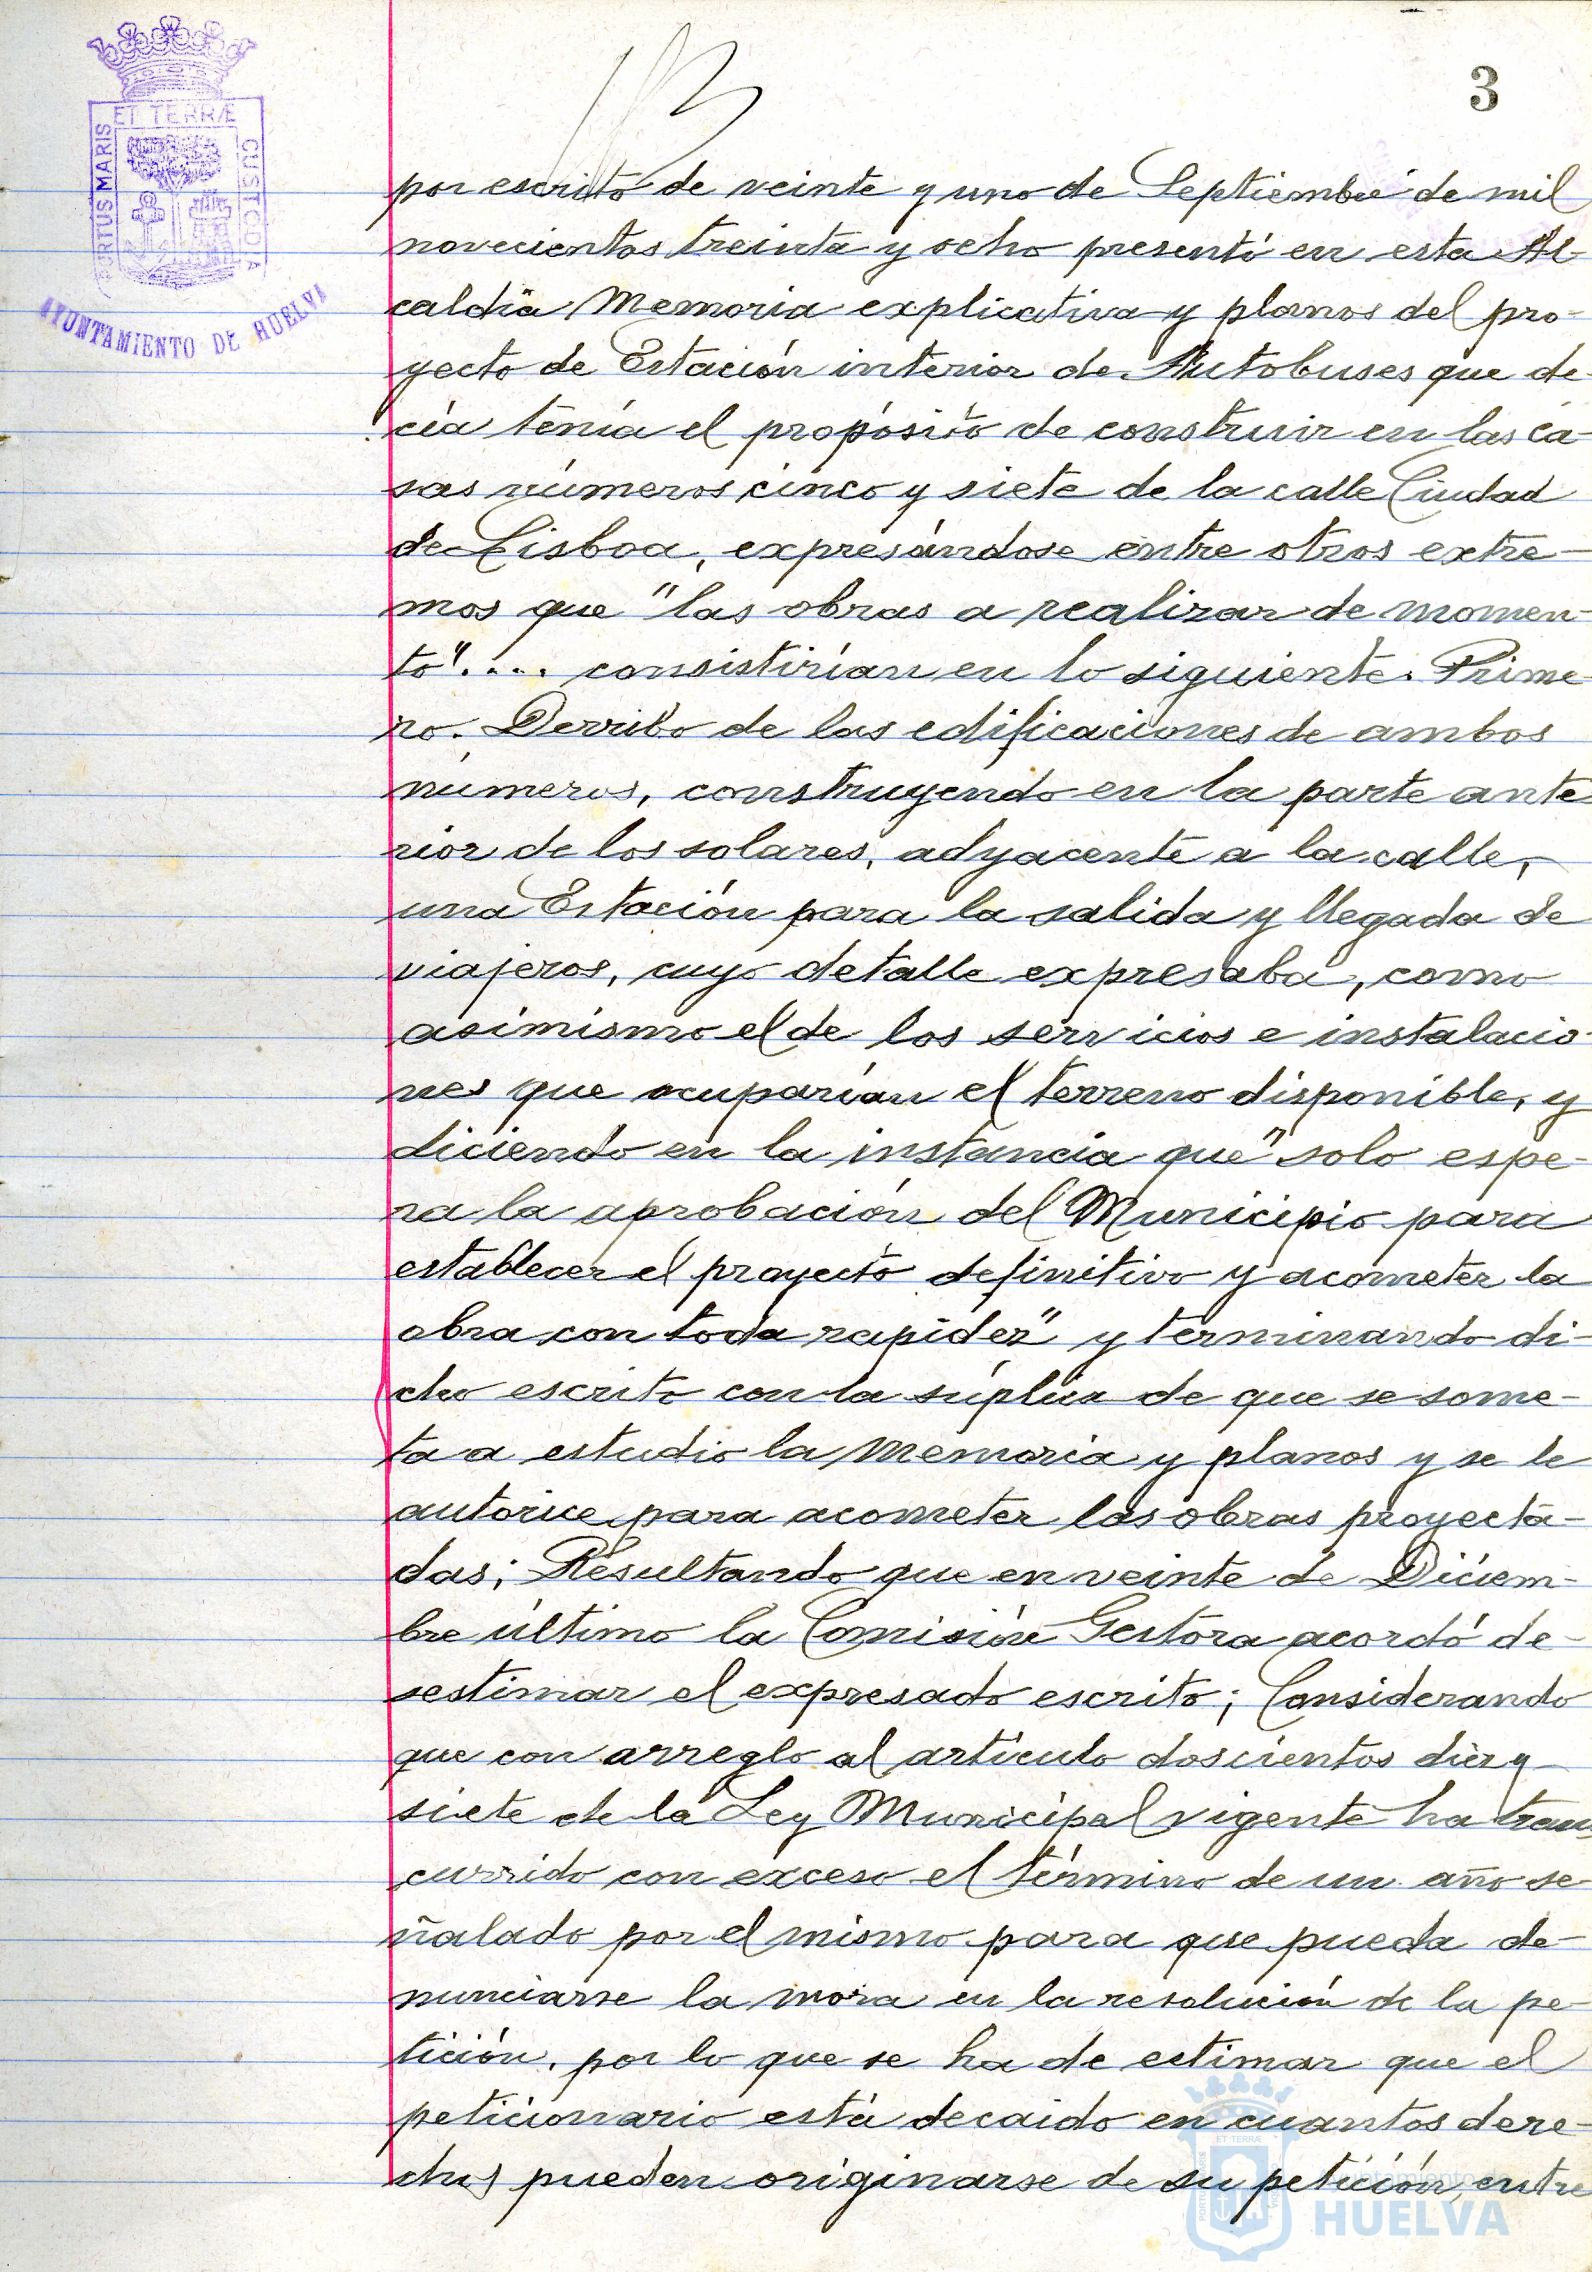 3
ET TERRÆ
PORTUS MARIS
CUSTODIA
AYUNTAMIENTO DE HUELVA
por escrito de veinte y uno de Septiembre de mil
novecientos treinta y ocho presentó en esta Al-
caldía Memoria explicativa y planos del pro-
yecto de Estación interior de Autobuses que de-
cía tenía el propósito de construir en las ca-
sas números cinco y siete de la calle Ciudad
de Lisboa, expresándose entre otros extre-
mos que "las obras a realizar de momen-
to".... consistirían en lo siguiente. Prime-
ro. Derribo de las edificaciones de ambos
números, construyendo en la parte ante
rior de los solares, adyacente a la calle,
una Estación para la salida y llegada de
viajeros, cuyo detalle expresaba, como
asimismo el de los servicios e instalacio-
nes que ocuparían el terreno disponible, y
diciendo en la instancia que "solo espe-
ra la aprobación del Municipio para
establecer el proyecto definitivo y acometer la
obra con toda rapidez" y terminando di-
cho escrito con la súplica de que se some-
ta a estudio la Memoria y planos y se le
autorice para acometer las obras proyecta-
das; Resultando que en veinte de Diciem-
bre último la Comisión Gestora acordó de-
sestimar el expresado escrito; Considerando
que con arreglo al artículo doscientos diez y
siete de la Ley Municipal vigente ha trans
currido con exceso el término de un año se-
ñalado por el mismo para que pueda de-
nunciarse la mora en la resolución de la pe-
tición, por lo que se ha de estimar que el
peticionario está decaido en cuantos dere-
chos pueden originarse de su petición, entre
Ayuntamiento de
HUELVA